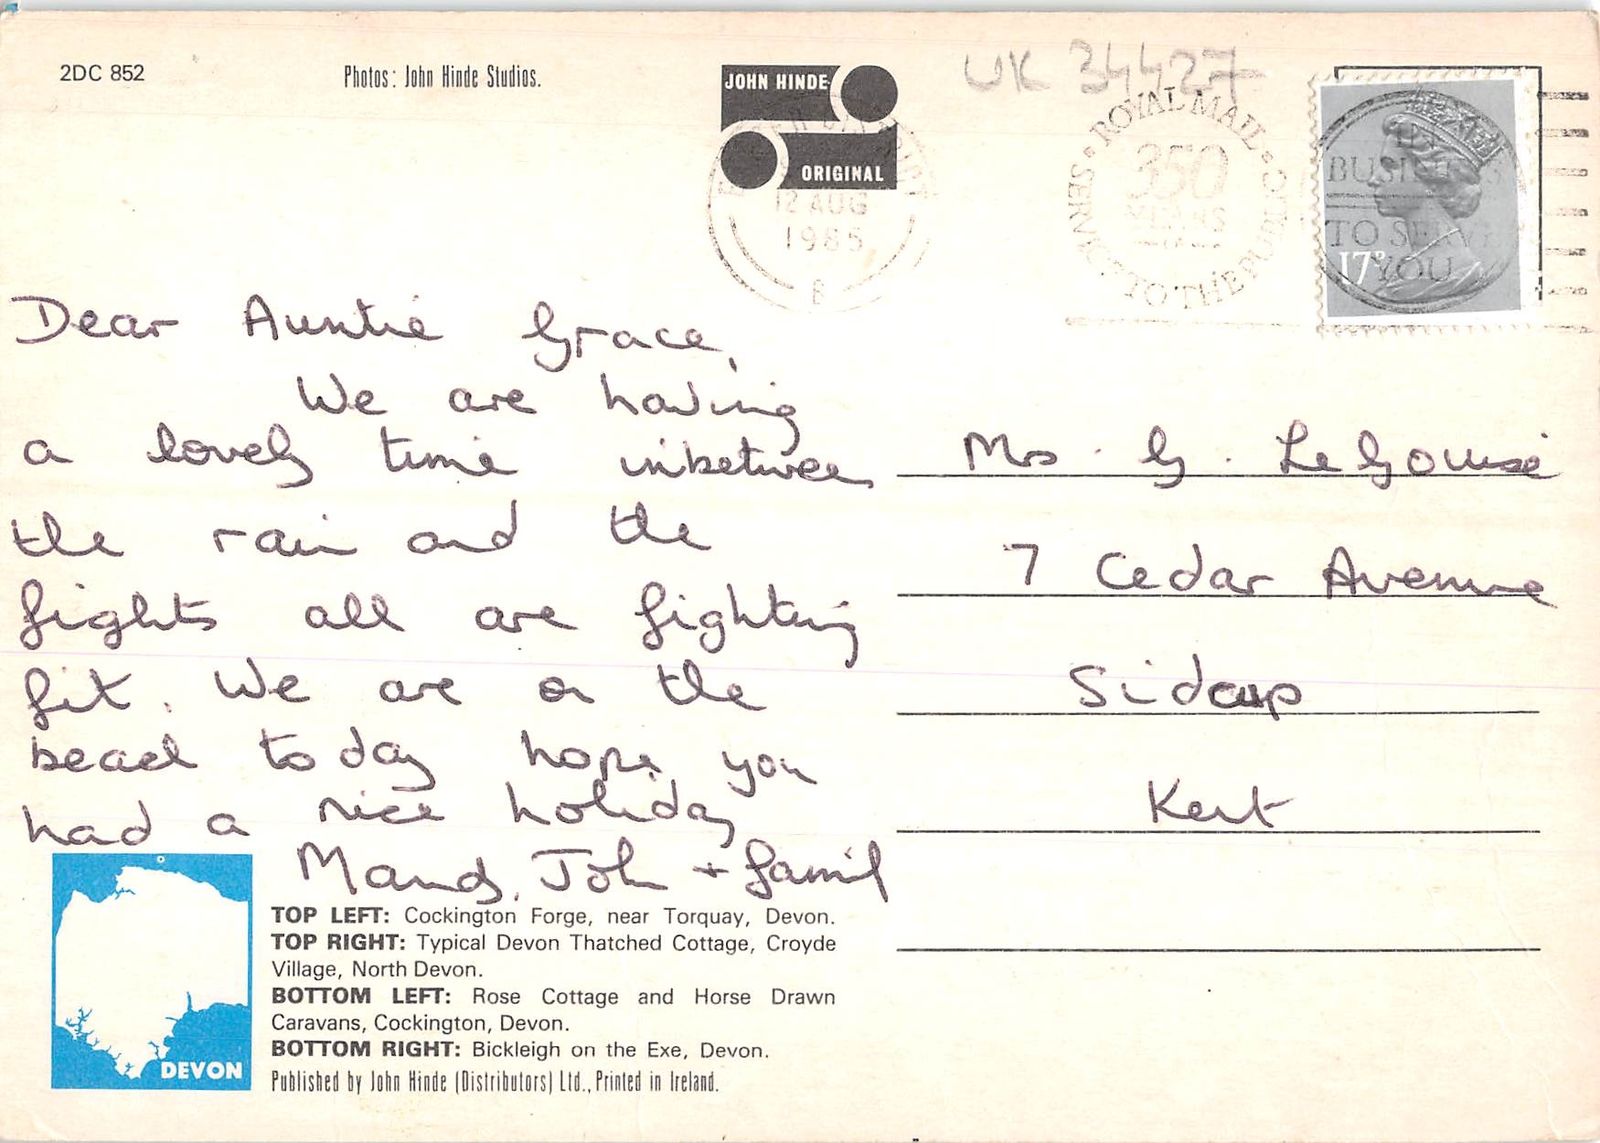 2DC 852
Photos: John Hinde Studios.
JOHN HINDE
ORIGINAL
UK 34427
12 AUG
1985
B
ROYAL MAIL
350
YEARS
SERVICE TO THE PUBLIC
IN
BUSINESS
TO SERVE
YOU
17P
Dear Auntie Grace,
We are having
a lovely time inbetween
the rain and the
fights all are fighting
fit. We are on the
beach today hope you
had a nice holiday
Mandy, John + family
Mrs. G. Le
7 Cedar Avenue
Sidcup
Kent
DEVON
TOP LEFT: Cockington Forge, near Torquay, Devon.
TOP RIGHT: Typical Devon Thatched Cottage, Croyde
Village, North Devon.
BOTTOM LEFT: Rose Cottage and Horse Drawn
Caravans, Cockington, Devon.
BOTTOM RIGHT: Bickleigh on the Exe, Devon.
Published by John Hinde (Distributors) Ltd., Printed in Ireland.